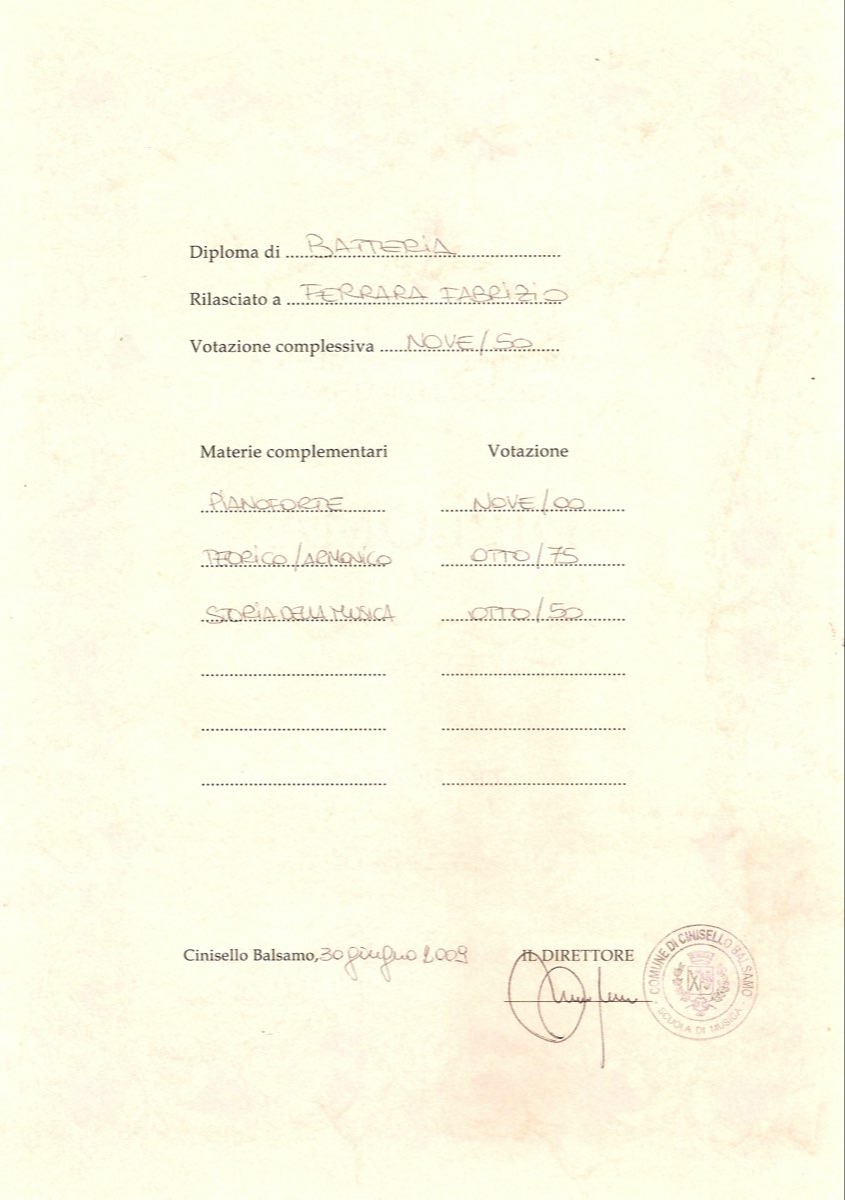 Diploma di BATTERIA
Rilasciato a FERRARA FABRIZIO
Votazione complessiva NOVE/50
Materie complementari Votazione
PIANOFORTE NOVE/00
TEORICO/ARMONICO OTTO/75
STORIA DELLA MUSICA OTTO/50
Cinisello Balsamo, 30 giugno 2009 IL DIRETTORE
COMUNE DI CINISELLO BALSAMO
SCUOLA DI MUSICA